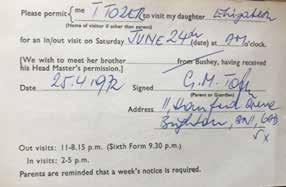 Please permit { me T TOZER to visit my daughter Elizabeth
(Name of visitor if other than parent)
for an In/out visit on Saturday JUNE 24th (date) at AM o'clock.
[We wish to meet her brother from Bushey, having received
his Head Master's permission.]
Date 25.4.1972 Signed G.M.
(Parent or Guardian)
Address 11,
Brighton, BN1, 6
Out visits: 11-8.15 p.m. (Sixth Form 9.30 p.m.)
In visits: 2-5 p.m.
Parents are reminded that a week's notice is required.